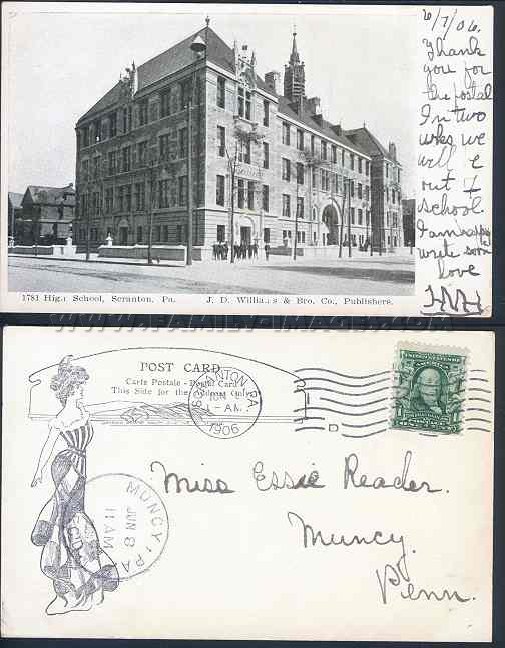 6/7/06.
Thank
you for
the postal
In two
wks we
will be
out of
school.
I am happy
write soon
love
1781 High School, Scranton, Pa. J. D. Williams & Bro. Co., Publishers.
WWW.FAMILY-IMAGES.COM
POST CARD
Carte Postale - Postal Card
This Side for the Address Only
SCRANTON, PA.
JUN 8
1-AM
1906
D
MUNCY, PA
JUN 8
11 AM
Miss Essie Reader.
Muncy.
Penn.